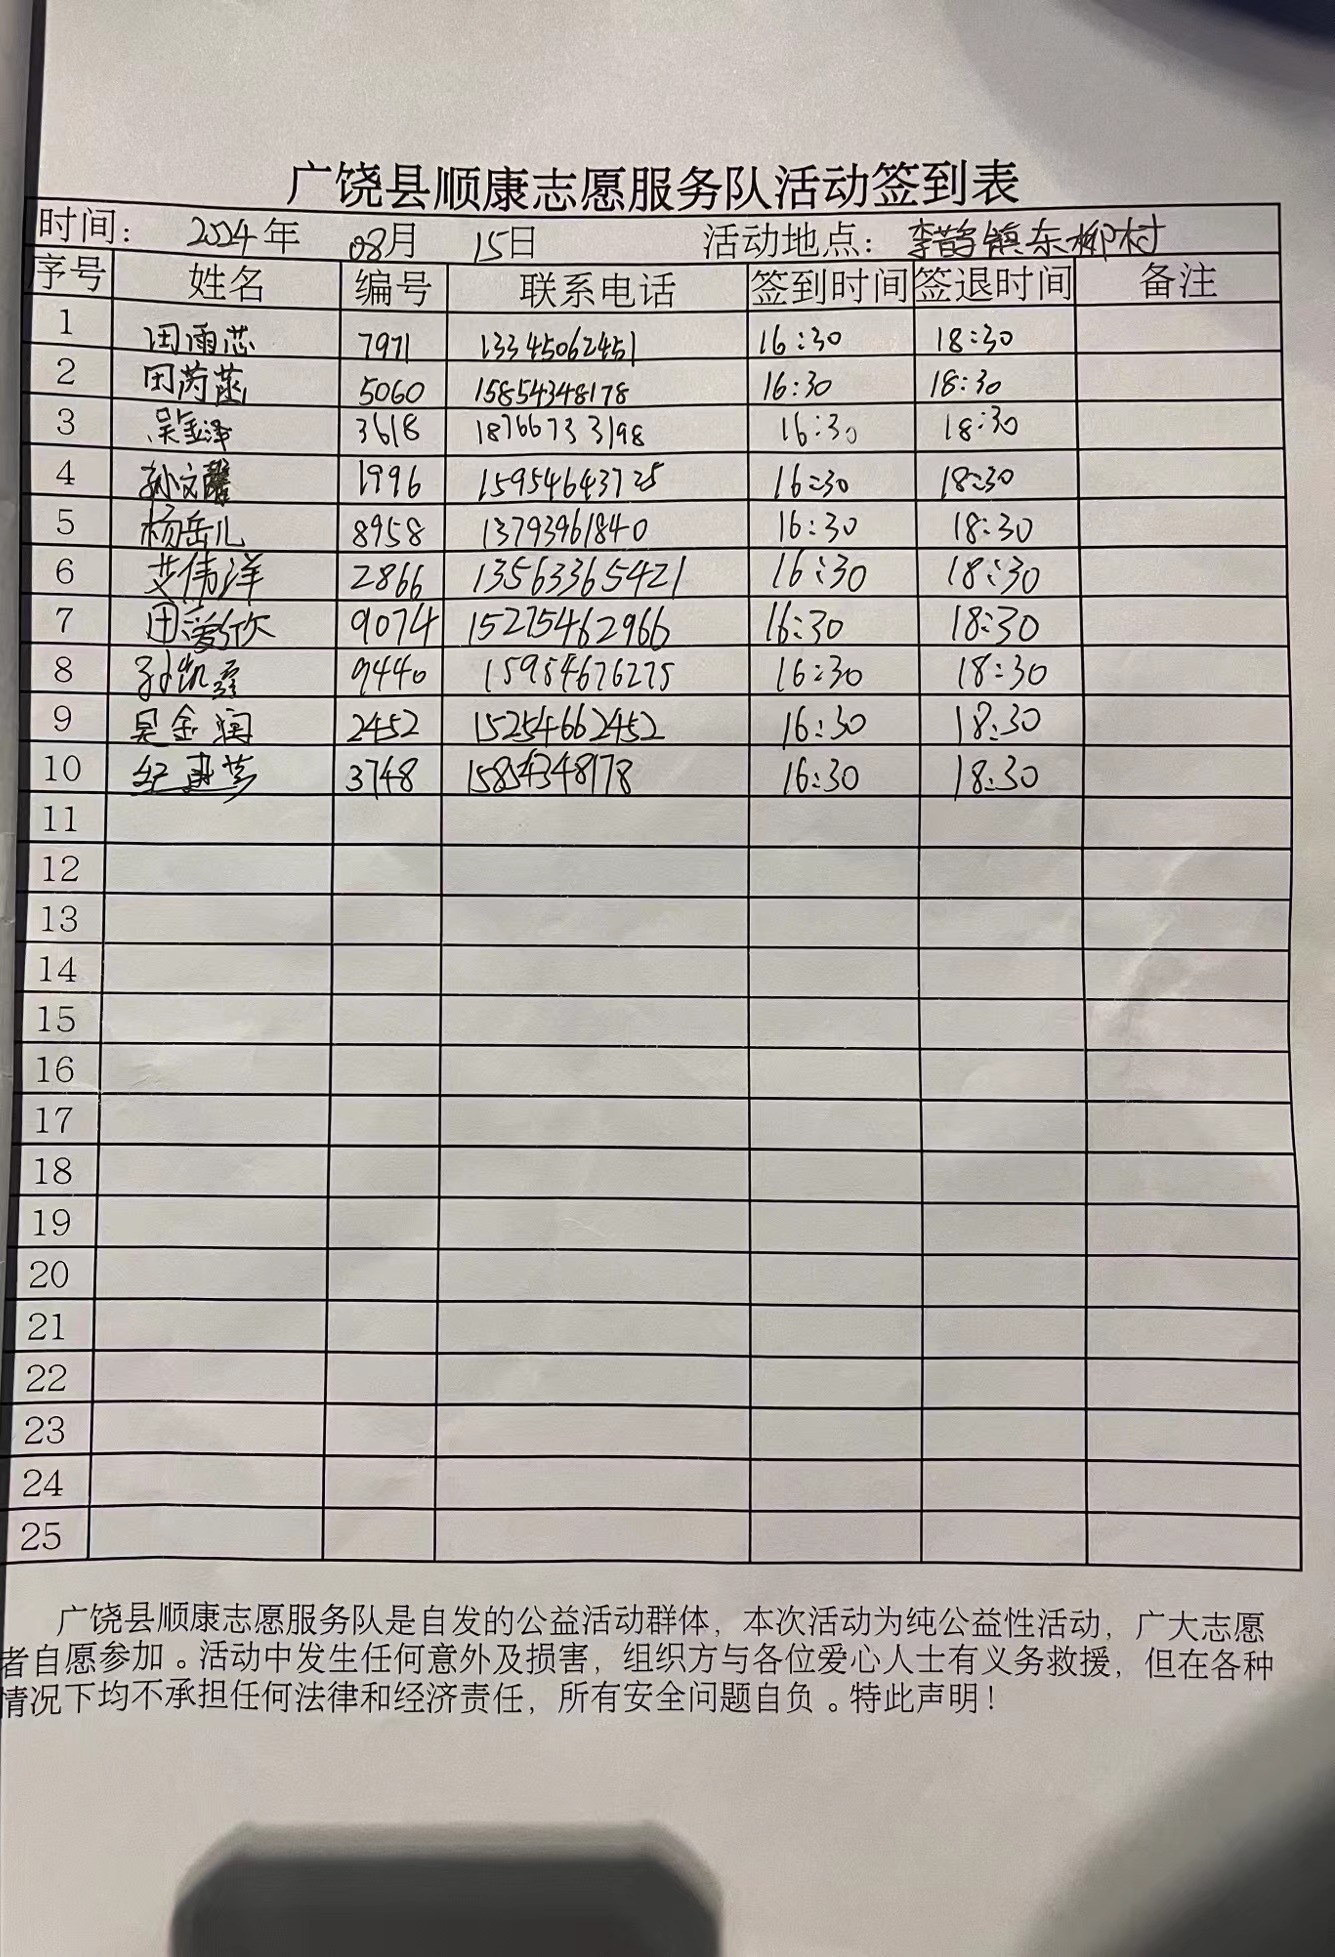 广饶县顺康志愿服务队活动签到表
时间： 2024年 08月 15日 活动地点：李鹊镇东柳村
序号 姓名 编号 联系电话 签到时间 签退时间 备注
1 田雨芯 7971 13345062451 16:30 18:30
2 田芮菡 5060 15854348178 16:30 18:30
3 吴金泽 3618 18766733198 16:30 18:30
4 孙文馨 1996 15954643725 16:30 18:30
5 杨岳儿 8958 13793961840 16:30 18:30
6 艾伟洋 2866 13563365421 16:30 18:30
7 田爱欣 9074 15275462966 16:30 18:30
8 孙凯 9440 15954676275 16:30 18:30
9 吴金润 2452 15254662452 16:30 18:30
10 纪 梦 3748 15854348178 16:30 18:30
11
12
13
14
15
16
17
18
19
20
21
22
23
24
25
广饶县顺康志愿服务队是自发的公益活动群体，本次活动为纯公益性活动，广大志愿
者自愿参加。活动中发生任何意外及损害，组织方与各位爱心人士有义务救援，但在各种
情况下均不承担任何法律和经济责任，所有安全问题自负。特此声明！